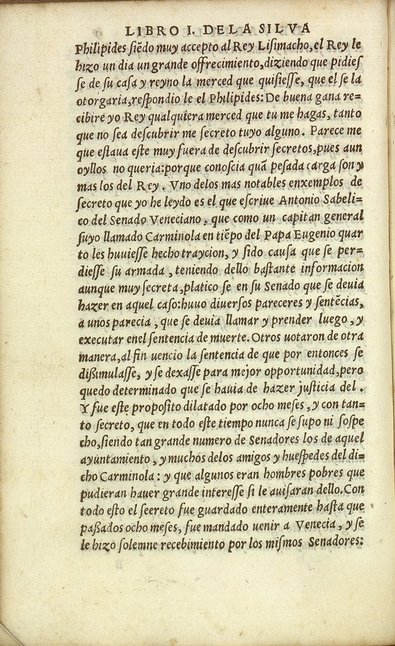 LIBRO I. DE LA SILVA
Philipides siẽdo muy accepto al Rey Lisimacho, el Rey le
hizo un dia un grande offrecimiento, diziendo que pidies
se de su casa y reyno la merced que quisiesse, que el se la
otorgaria, respondio le el Philipides: De buena gana re-
cibire yo Rey qualquiera merced que tu me hagas, tanto
que no sea descubrir me secreto tuyo alguno. Parece me
que estaua este muy fuera de descubrir secretos, pues aun
oyllos no queria: porque conoscia quã pesada carga son y
mas los del Rey. Vno delos mas notables enxemplos de
secreto que yo he leydo es el que escriue Antonio Sabeli-
co del Senado Veneciano, que como un capitan general
suyo llamado Carminola en tiẽpo del Papa Eugenio quar
to les huuiesse hecho trayción, y sido causa que se per-
diesse su armada, teniendo dello bastante informacion
aunque muy secreta, platico se en su Senado que se deuia
hazer en aquel caso: huuo diuersos pareceres y sentẽcias,
a unos parecia, que se deuia llamar y prender luego, y
executar enel sentencia de muerte. Otros uotaron de otra
manera, al fin uencio la sentencia de que por entonces se
dissimulasse, y se dexasse para mejor opportunidad, pero
quedo determinado que se hauia de hazer justicia del.
Y fue este proposito dilatado por ocho meses, y con tan-
to secreto, que en todo este tiempo nunca se supo ni sospe
cho, siendo tan grande numero de Senadores los de aquel
ayuntamiento, y muchos delos amigos y huespedes del di-
cho Carminola: y que algunos eran hombres pobres que
pudieran hauer grande interesse si le auisaran dello. Con
todo esto el secreto fue guardado enteramente hasta que
passados ocho meses, fue mandado uenir a Venecia, y se
le hizo solemne recebimiento por los mismos Senadores: